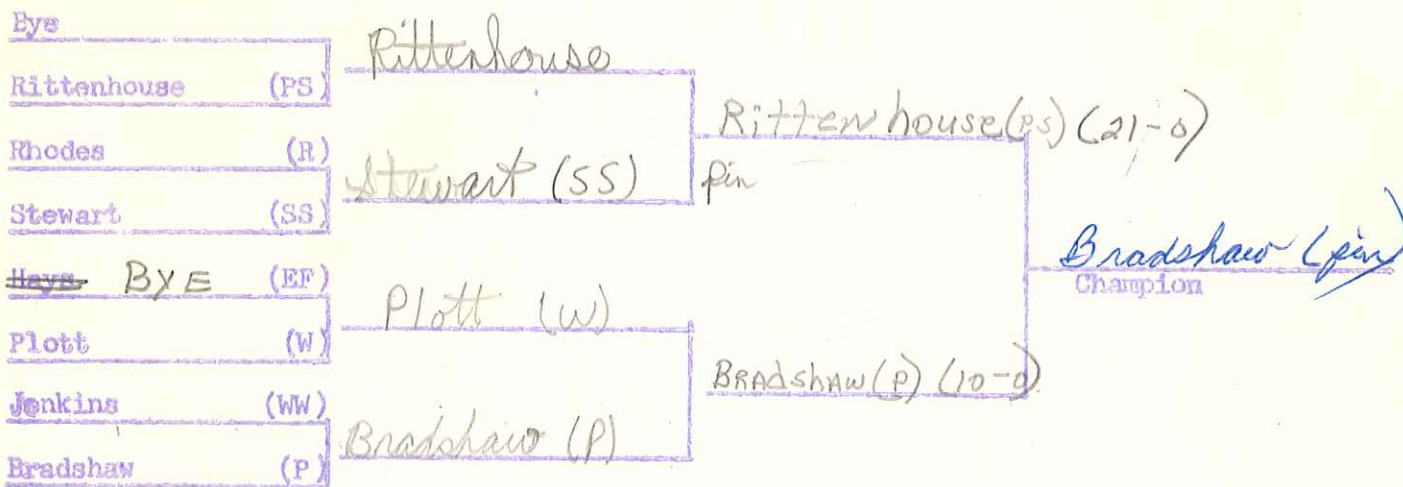 Bye
Rittenhouse (PS)
Rhodes (R)
Stewart (SS)
Hays BYE (EF)
Plott (W)
Jenkins (WW)
Bradshaw (P)
Rittenhouse
Stewart (SS)
Plott (W)
Bradshaw (P)
Rittenhouse (PS) (21-0)
pin
BRADSHAW (P) (10-0)
Bradshaw (pin)
Champion